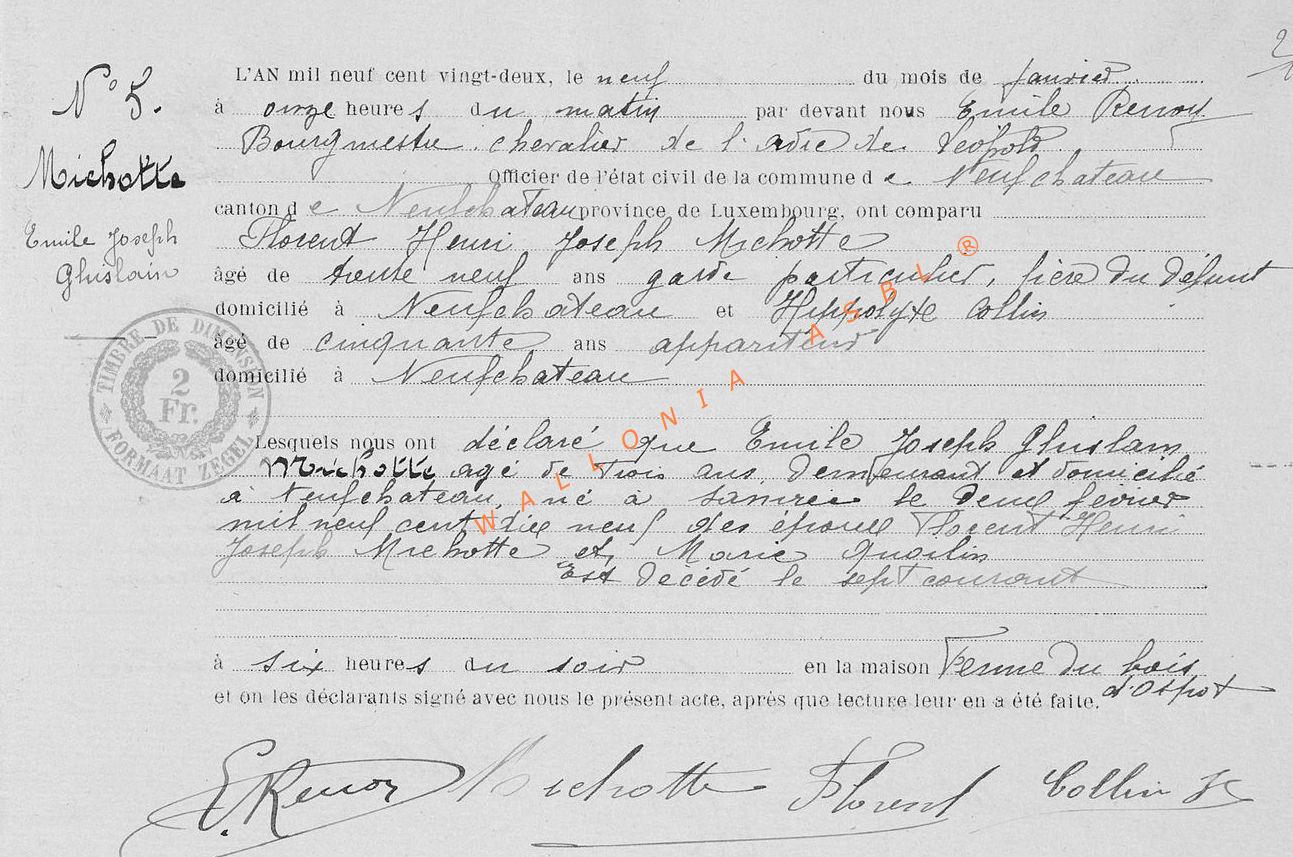 N° 5.
Michotte
Emile Joseph
Ghislain
L'AN mil neuf cent vingt-deux, le neuf du mois de janvier
à onze heures du matin par devant nous Emile Renoy
Bourgmestre chevalier de l'ordre de Léopold
Officier de l'état civil de la commune de Neufchateau
canton de Neufchateau province de Luxembourg, ont comparu
Florent Henri Joseph Michotte
âgé de trente neuf ans garde particulier, père du défunt
domicilié à Neufchateau et Hippolyte Collin
âgé de cinquante ans appariteur
domicilié à Neufchateau
Lesquels nous ont déclaré que Emile Joseph Ghislain
Michotte agé de trois ans, demeurant et domicilié
à Neufchateau, né à Samrée le deux fevrier
mil neuf cent dix neuf des époux Florent Henri
Joseph Michotte et Marie Quoilin
Est décédé le sept courant
à six heures du soir en la maison Ferme du bois
d'Ospot
et on les déclarants signé avec nous le présent acte, après que lecture leur en a été faite.
E. Renoy Michotte Florent Collin
TIMBRE DE DIMENSION
2
Fr.
FORMAAT ZEGEL
WALLONIA ASBL ®